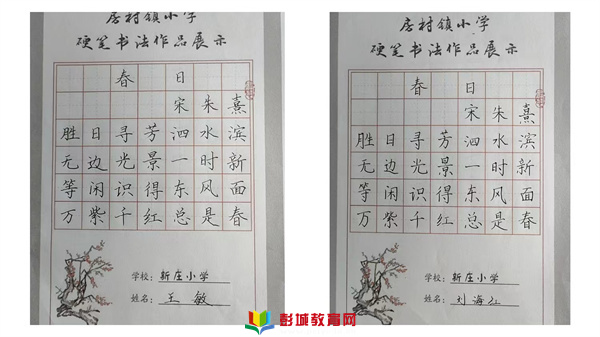 房村镇小学
硬笔书法作品展示
春日
宋朱熹
胜日寻芳泗水滨
无边光景一时新
等闲识得东风面
万紫千红总是春
学校：新庄小学
姓名：王敏
房村镇小学
硬笔书法作品展示
春日
宋朱熹
胜日寻芳泗水滨
无边光景一时新
等闲识得东风面
万紫千红总是春
学校：新庄小学
姓名：刘海江
彭城教育网